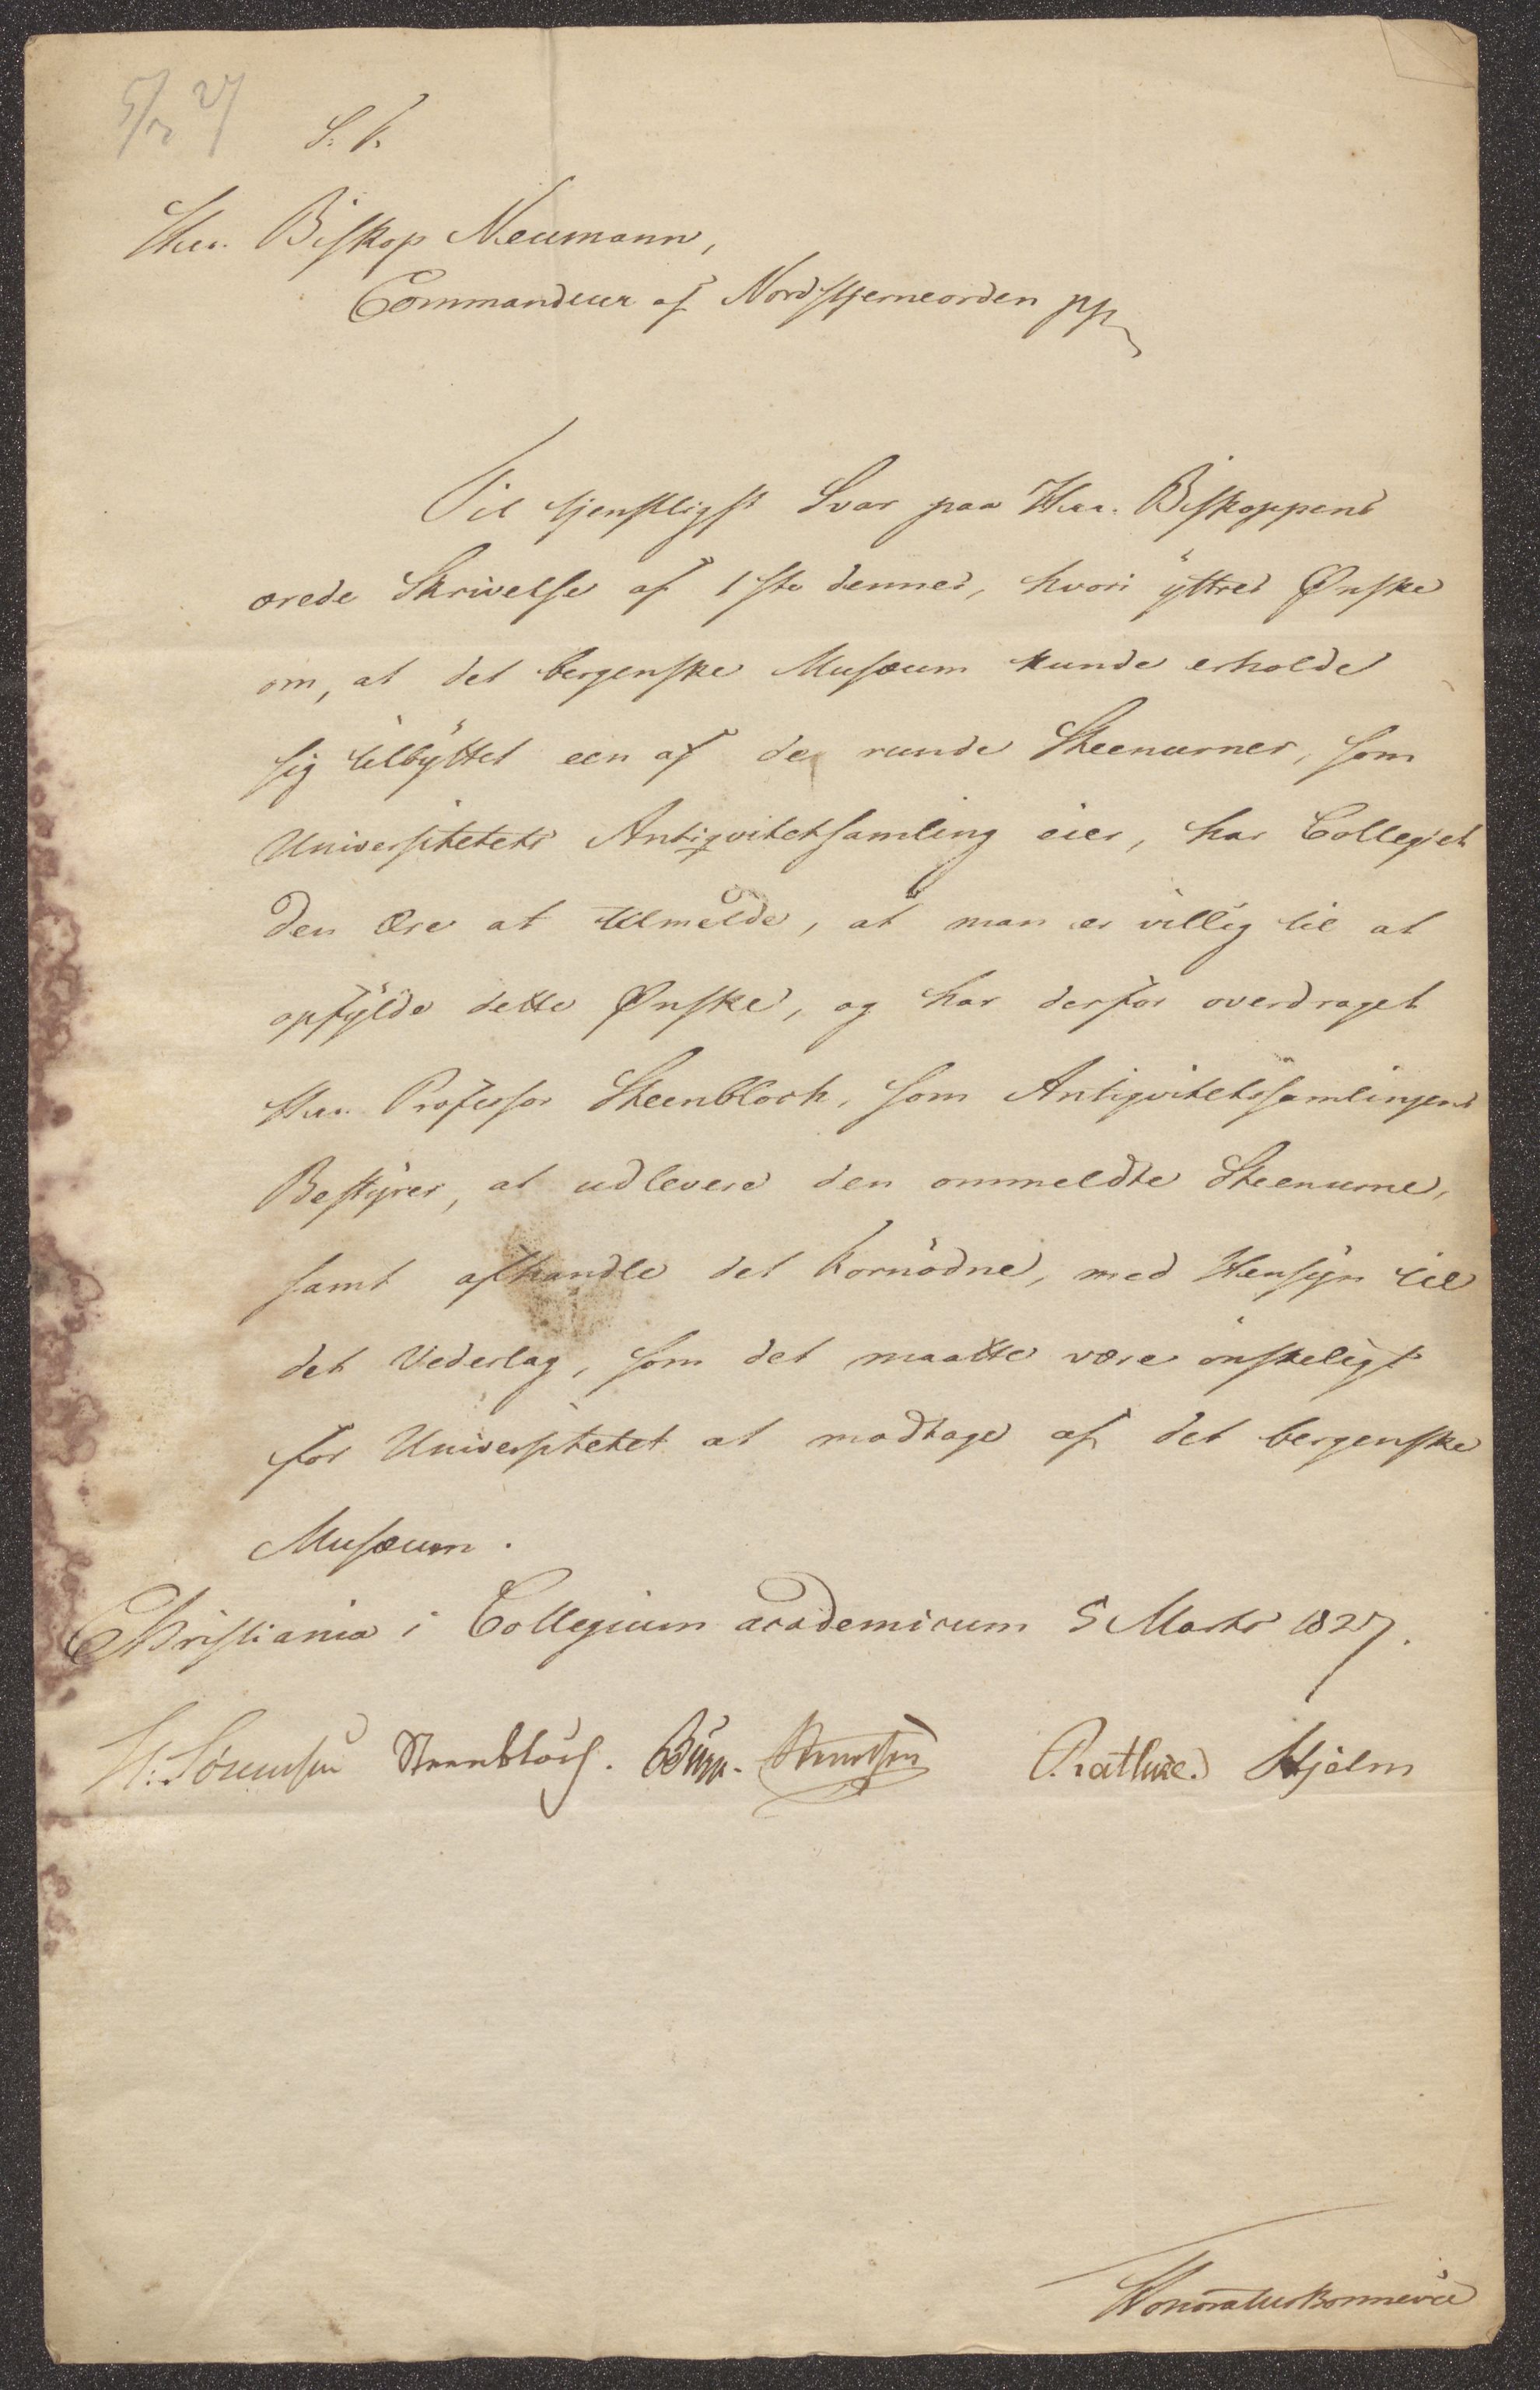 5/3 27
S. T.
Herr Biskop Neumann,
Commandeur af Nordstjerneorden pp
Til tjenstligst Svar paa Herr Biskoppens
ærede Skrivelse af 1ste dennes, hvori yttres Ønske
om, at det bergenske Musæum kunde erholde
sig tilbyttet een af de runde Steenurner, som
Universitetets Antiqvitetsamling eier, har Collegiet
den Ære at tilmelde, at man er villig til at
opfylde dette Ønske, og har derfor overdraget
Herr Professor Steenbloch, som Antiqvitetssamlingens
Bestyrer, at udlevere den ommeldte Steenurne,
samt afhandle det fornødne, med Hensyn til
det Vederlag, som det maatte være ønskeligt
for Universitetet at modtage af det bergenske
Musæum.
Christiania i Collegium academicum 5 Marts 1827.
N. Sørensen Steenbloch. Bugge. Knudsen Rathke. Hjelm
Honoratus Bonnevie